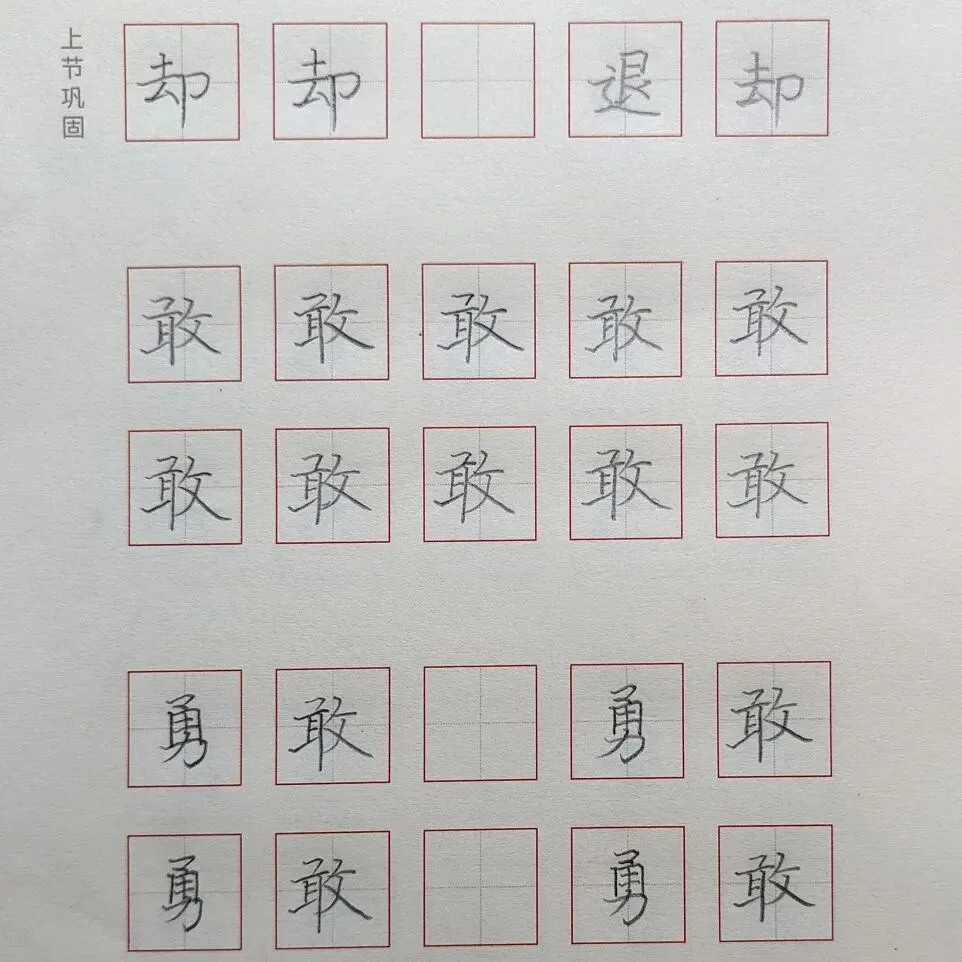 上节巩固
却却 退却
敢敢敢敢敢
敢敢敢敢敢
勇敢 勇敢
勇敢 勇敢